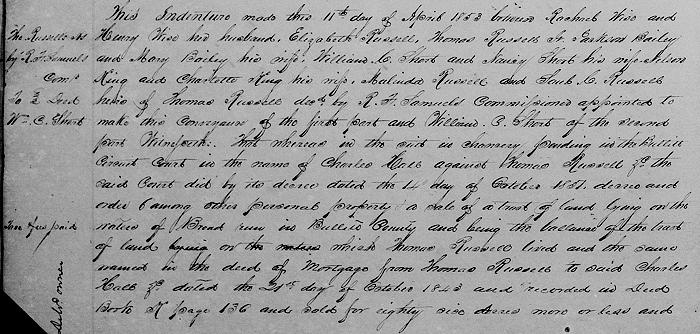 This Indenture made this 11th day of April 1853 between Rachael Wise and
Henry Wise her husband. Elizabeth Russell, Thomas Russell Jr Jackson Bailey
and Mary Bailey his wife. William C. Short and Nancy Short his wife Nelson
King and Charlotte King his wife. Malinda Russell and C. Russell
heirs of Thomas Russell decd by R. F. Samuels Commissioner appointed to
make this Conveyance of the first part and William C. Short of the second
part Witnesseth. That whereas in the suit in chancery pending in the Bullitt
Circuit Court in the name of Charles Hall against Thomas Russell &c. the
said Court did by its decree dated the 14 day of October 1851. decree and
order among other personal property a sale of a tract of land lying on the
waters of Broad run in Bullitt County and being the ballance of the tract
of land on the which Thomas Russell lived and the same
named in the deed of Mortgage from Thomas Russell to said Charles
Hall &c. dated the 21st day of October 1843 and recorded in Deed
Book page 136 and sold for eighty six acres more or less and
The Russells &c
by R. F. Samuels
Comr
To Deed
Wm. C. Short
Tax & fees paid